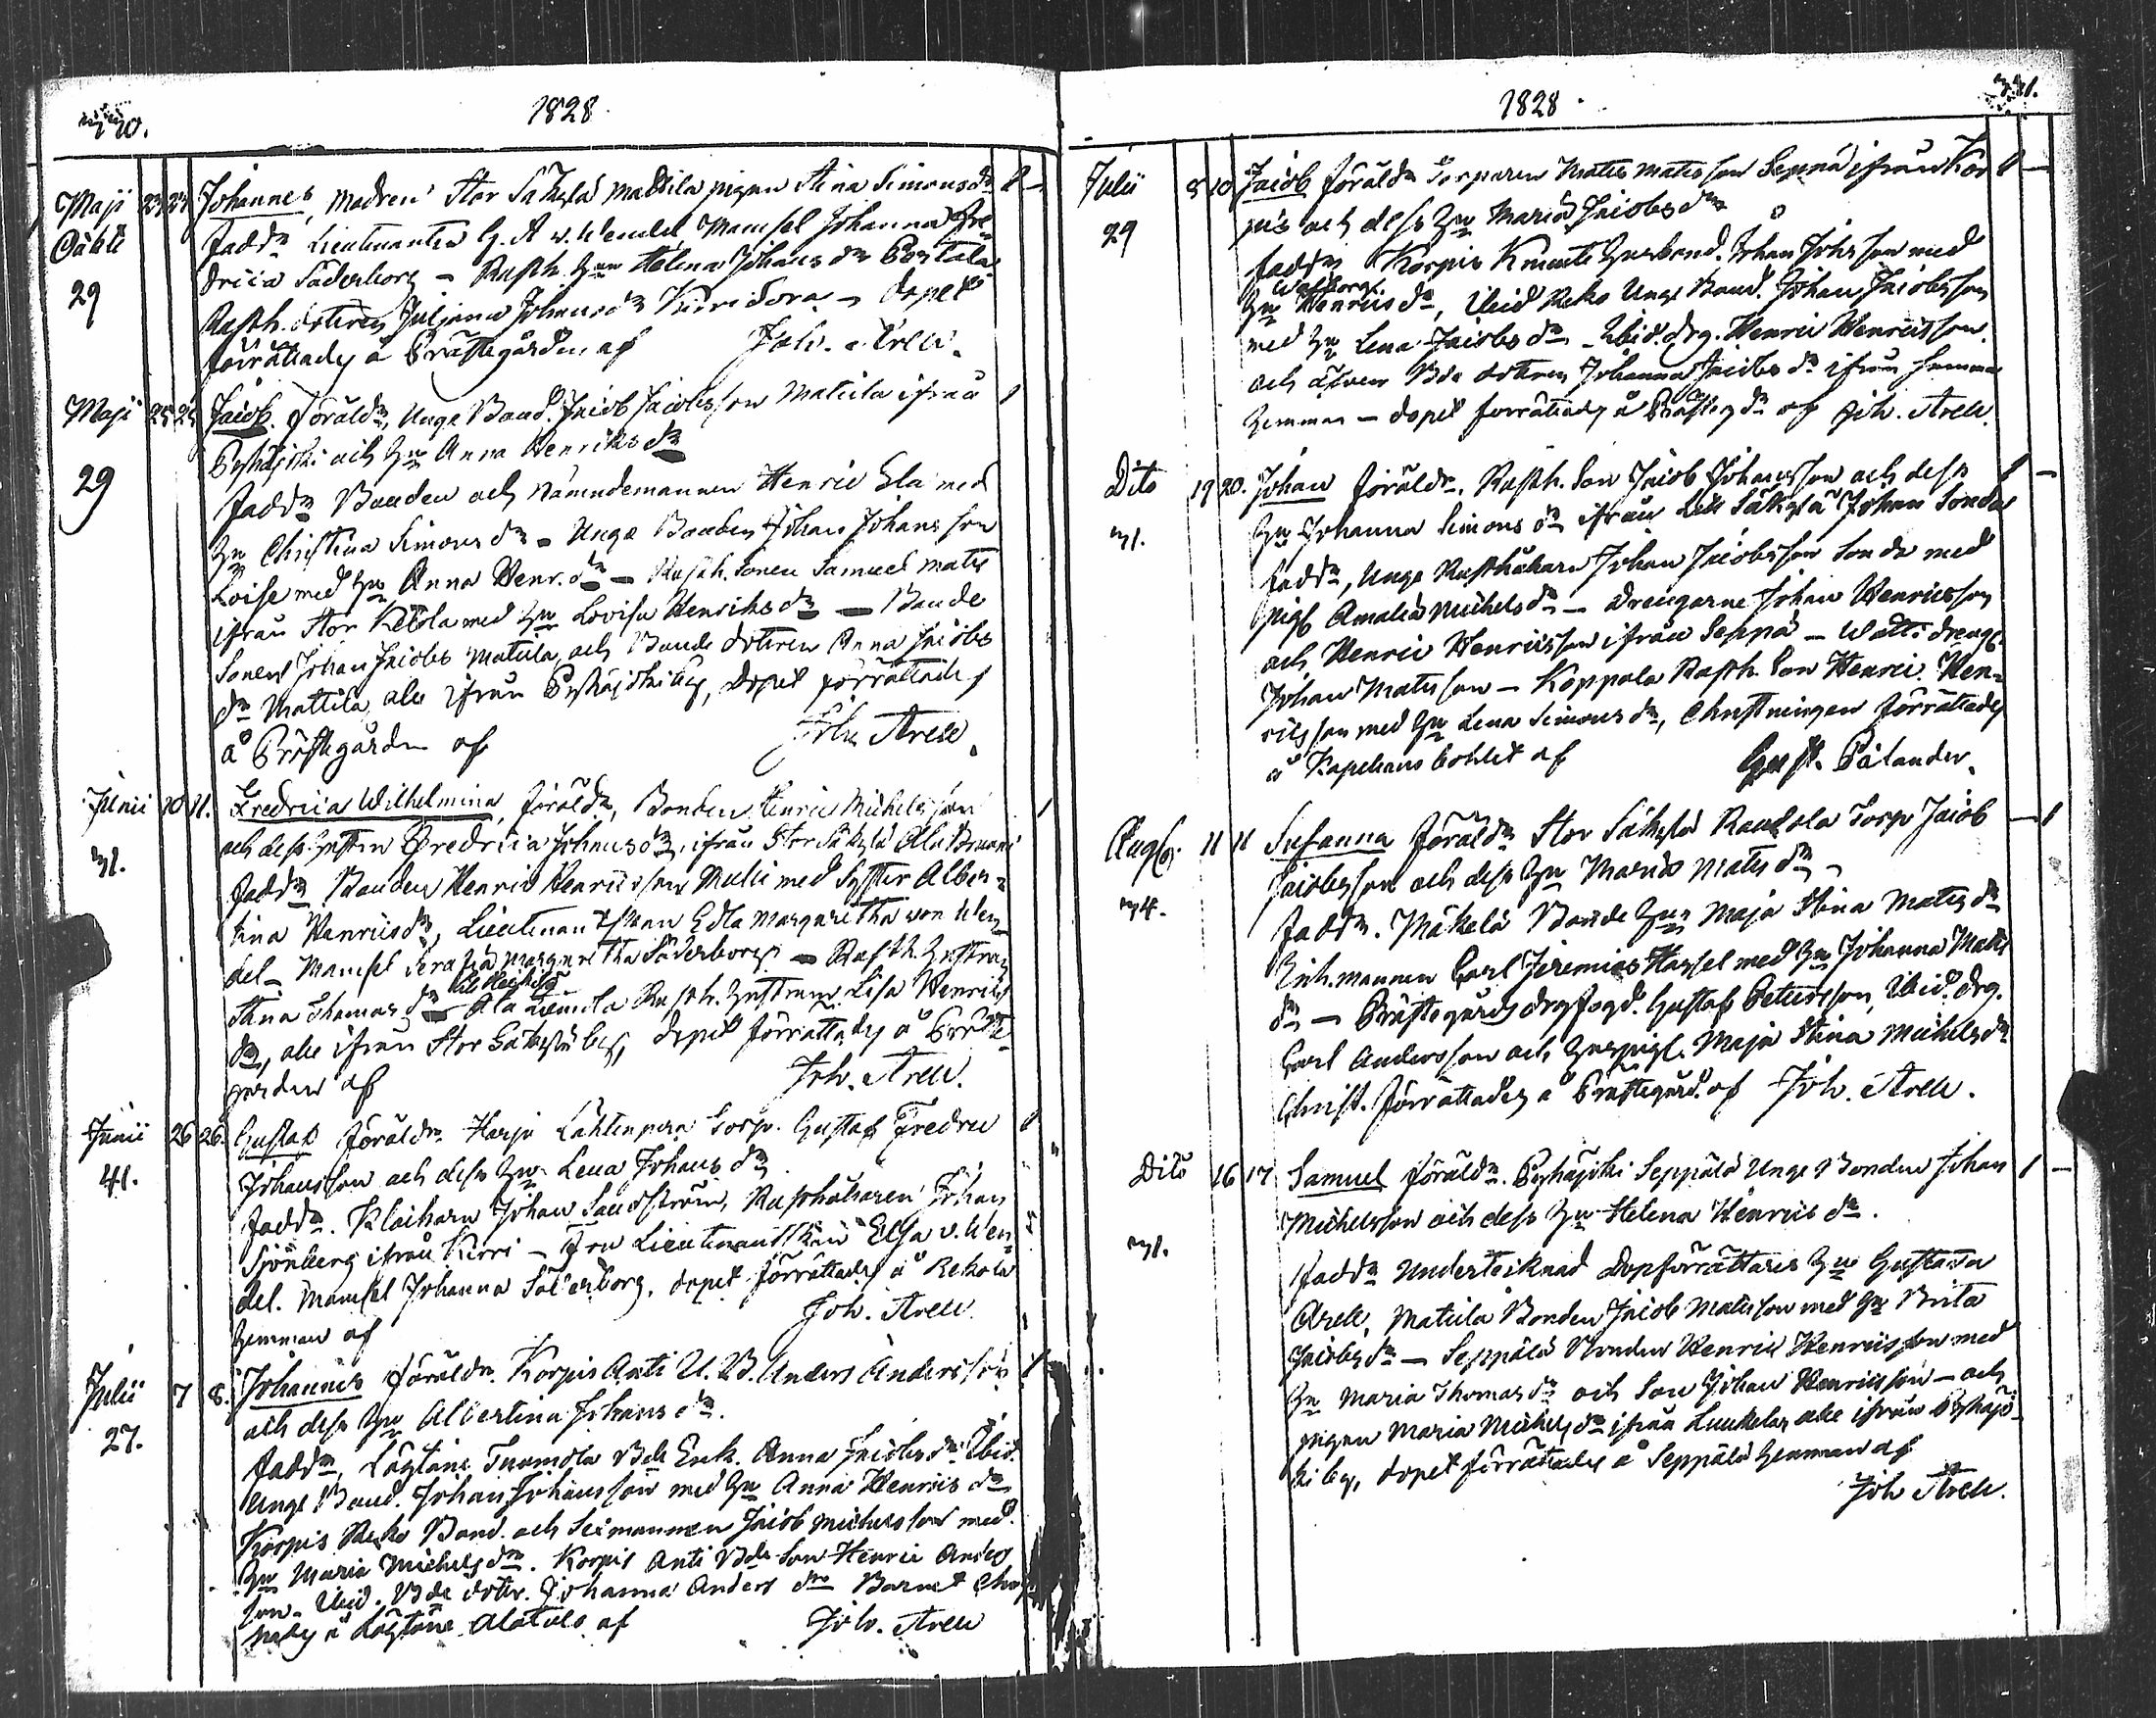 1828.
Maji 23 24 Johannes, Modren Stor Säkylä Mattila pigan Stina Simonsdr 1 —
Oäkta Faddr Lieutnanten G. A v. Wendel Mamsel Johanna Fre-
29 drica Söderborg — Rusth. Hu Helena Johansdr Pertala
Rusth. dottren Juliana Johansdr Kirri Sora — dopet
förrättades å Prästegården af Joh. Arell.
Maji 25 25 Jacob. Föräldr, Unge Bond. Jacob Jacobsson Mattila ifrån 1
Pyhäjoki och Hu Anna Henriksdr
29 Faddr Bonden och Nämndemannen Henric Ela med
Hu Christina Simonsdr — Unge Bonden Johan Johansson
Loise med Hu Anna Henr. dr — Rusth. Sonen Samuel Mats
ifrån Stor Ketola med Hu Lovisa Henriksdr — Bonde
Sonen Johan Jacobs Mattila, och Bonde dottren Anna Jacobs
dr Mattila, alla ifrån Pyhäjoki by, Dopet förrättades
å Prästegården af Joh. Arell.
Junii 10 11. Fredrica Wilhelmina, föräldr, Bonden Henric Michelsson 1
och dess hustru Fredrica Johansdr, ifrån Stor Säkylä
31. Faddr Bonden Henric Henricsson Mulli med Syster Alber-
tina Henricsdr, Lieutnantskan Edla Margaretha von Wen-
del — Mamsel Margaretha Söderborg — Rusth. Hustrun
Stina Thomasdr — Rusth. Hustrun Lisa Henrics
dr, alla ifrån Stor Säkylä by, dopet förrättades å Präste-
gården af Joh. Arell.
Junii 26 26. Gustaf föräldr Harju Lähtenperä Torp. Gustaf Fredric 1
41. Johansson och dess Hu Lena Johansdr
Faddr. Klockaren Johan Sandström, Rusthållaren Johan
Sjönberg ifrån Kirri — Fru Lieutnantskan Elsa v. Wen-
del. Mamsel Johanna Söderborg. dopet förrättades å Rekola
Hemman af Joh. Arell.
Julii 7 8. Johannes föräldr. Korpis Anti U. B. Anders Andersson 1
27. och dess Hu Albertina Johansdr.
Faddr, Löytäne Tuomola Bde Enk. Anna Jacobsdr Ibid.
Unge Bond. Johan Johansson med Hu Anna Henricsdr
Korpis Reko Bond. och Sexmannen Jacob Michelsson med
Hu Maria Michelsdr. Korpis Anti Bde Son Henric Anders
son. Ibid. Bde dottr. Johanna Andersdr Barnet Christ
nades å Löytäne Alatalo af Joh. Arell
1828.
Julii 8 10 Jacob föräldr Torparen Matts Matsson Seppä ifrån Kor 1 —
29 pis och dess Hu Maria Jacobsdr
Faddr Korpis Knuuti Husbond. Johan Johsson med
Hu Walborg Henricsdr, Ibid Reko Unge Bond. Johan Jacobsson
med Hu Lena Jacobsdr — Ibid. drg. Henric Henricsson.
och äfven Bde dottren Johanna Jacobsdr ifrån samma
Hemman — dopet förrättades å Prästegdn af Joh. Arell.
Dito 19 20. Johan Föräldr, Rusth. Son Jacob Johansson och dess 1 —
31. Hu Johanna Simonsdr ifrån Lill Säkylä Johan Sonda
Faddr, Unge Rusthållaren Johan Jacobsson Sonda med
Pig. Amalia Michelsdr — Drengarne Johan Henricsson
och Henric Henricsson ifrån Seppä — Watti dreng.
Johan Matsson — Koppala Rusth. Son Henric Hen-
ricsson med Hu Lena Simonsdr, Christningen förrättades
å Kapellans bohlet af Gust. Pälander.
Aug. 11 11 Susanna föräldr Stor Säkylä Raukola Torp Jacob — 1
Jacobsson och dess Hu Maria Matsdr —
34. Faddr. Mäkelä Bonde Hu Maja Stina Matsdr
Carl Jeremias Hassel med Hu Johanna Mats
dr — Prästegårds drg fogd. Gustaf Pettersson, Ibid. drg.
Carl Andersson och Huspig. Maja Stina Michelsdr
Christ. förrättades å Prästegård. af Joh. Arell.
Dito 16 17 Samuel föräldr. Pyhäjoki Seppälä Unge Bonden Johan 1 —
Michelsson och dess Hu Helena Henricsdr.
31. Faddr Undertecknad Dopförrättares Hu Gustava
Arell, Mattila Bonden Jacob Matsson med Hu Brita
Jacobsdr — Seppälä Bonden Henric Henricsson med
Hu Maria Thomasdr och Son Johan Henricsson — och
pigan Maria Michelsdr ifrån Luukela, alla ifrån Pyhäjo-
ki by, dopet förrättades å Seppälä Hemman af
Joh Arell.